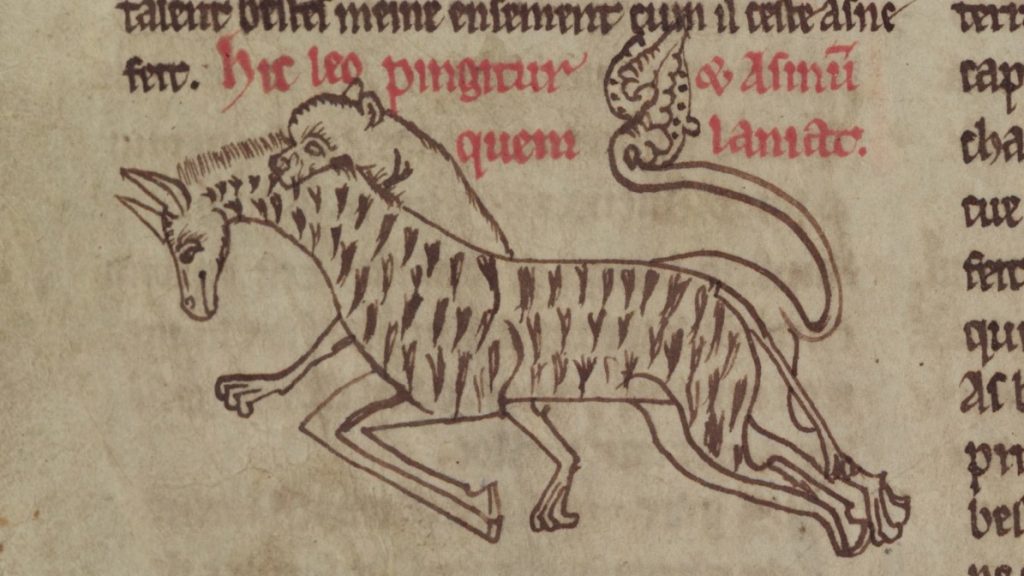 talent bestes meine ensement cum il ceste asne
feit. Hic leo pingitur & Asinū
quem laniat.
terr
cap
cha
cue
feit
qui
As b
pri
bes